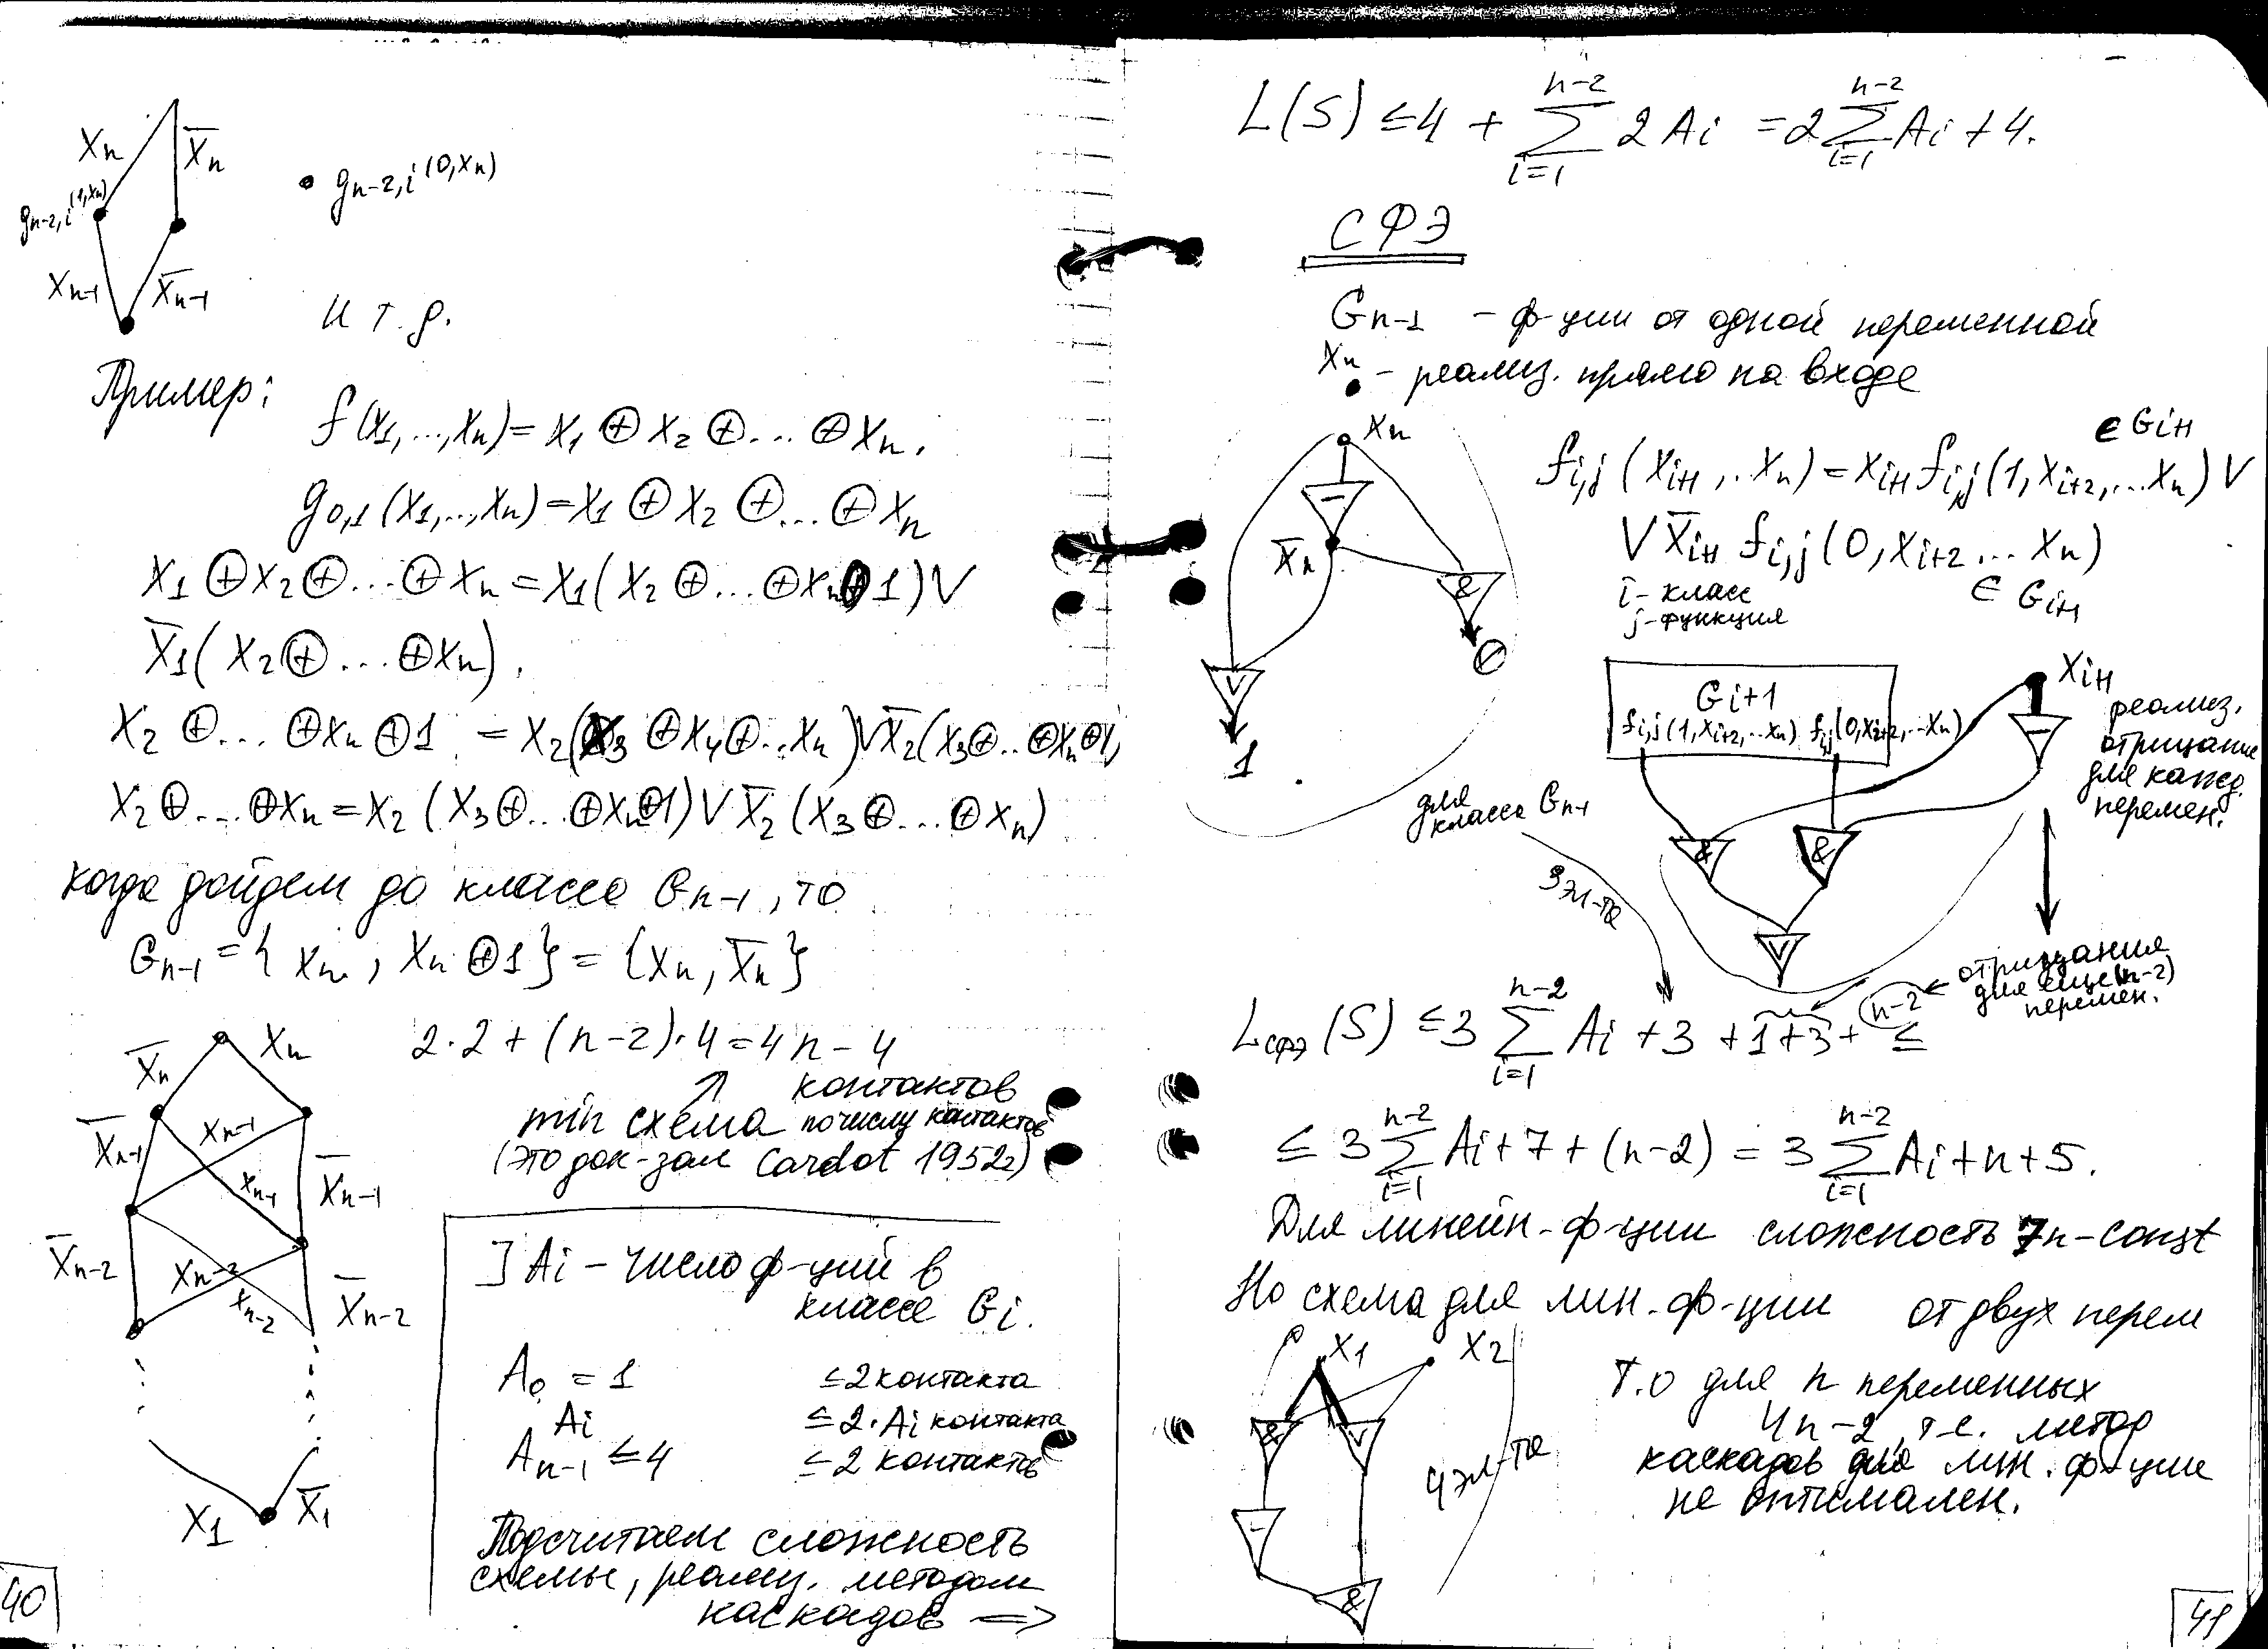 Xn X̄n
gn-2,i(1,xn)
• gn-2,i(0,xn)
Xn-1 X̄n-1
и т.д.
Пример:
f(x1,...,xn)=x1⊕x2⊕...⊕xn.
g0,1(x1,...,xn)=x1⊕x2⊕...⊕xn
x1⊕x2⊕...⊕xn=x1(x2⊕...⊕xn⊕1)∨
x̄1(x2⊕...⊕xn).
x2⊕...⊕xn⊕1 =x2(x3⊕x4⊕...xn)∨x̄2(x3⊕..⊕xn⊕1)
x2⊕...⊕xn=x2(x3⊕...⊕xn⊕1)∨x̄2(x3⊕...⊕xn)
когда дойдем до класса Gn-1, то
Gn-1={xn, xn⊕1}={xn, x̄n}
X̄n Xn
2·2+(n-2)·4=4n-4
↗ контактов
min схема по числу контактов
(это док-зал Cardot 1952г)
X̄n-1 Xn-1 Xn-1 X̄n-1
X̄n-2 Xn-2 Xn-2 X̄n-2
X1 X̄1
] Ai – число ф-ций в
классе Gi.
A0 = 1 ≤2 контакта
Ai ≤2·Ai контакта
An-1 ≤4 ≤2 контактов
Подсчитаем сложность
схемы, реализ. методом
каскадов ⇒
40
L(S) ≤4 + ∑_{i=1}^{n-2} 2Ai = 2∑_{i=1}^{n-2} Ai + 4.
СФЭ
Gn-1 – ф-ции от одной переменной
Xn
• – реализ. прямо на входе
Xn
–
X̄n
&
0
V
1
∈Gi+1
fi,j(xi+1,..xn)=xi+1fi,j(1,xi+2,...xn)∨
∨x̄i+1fi,j(0,xi+2...xn)
∈Gi+1
i-класс
j-функция
Gi+1
fi,j(1,xi+2,..xn) fi,j(0,xi+2,..xn)
Xi+1
–
реализ.
отрицание
для кажд.
перемен.
& &
V
для
класса Gn-1
3 эл-та
отрицания
для еще (n-2)
перемен.
LСФЭ(S) ≤3∑_{i=1}^{n-2} Ai +3 +1+3+ n-2 ≤
≤3∑_{i=1}^{n-2} Ai+7+(n-2) = 3∑_{i=1}^{n-2} Ai+n+5.
Для линейн. ф-ции сложность 7n-const
Но схема для лин. ф-ции от двух перем
X1 X2
& V
–
&
4 эл-та
Т.о для n переменных
4n-2, т.е. метод
каскадов для лин. ф-ции
не оптимален.
41